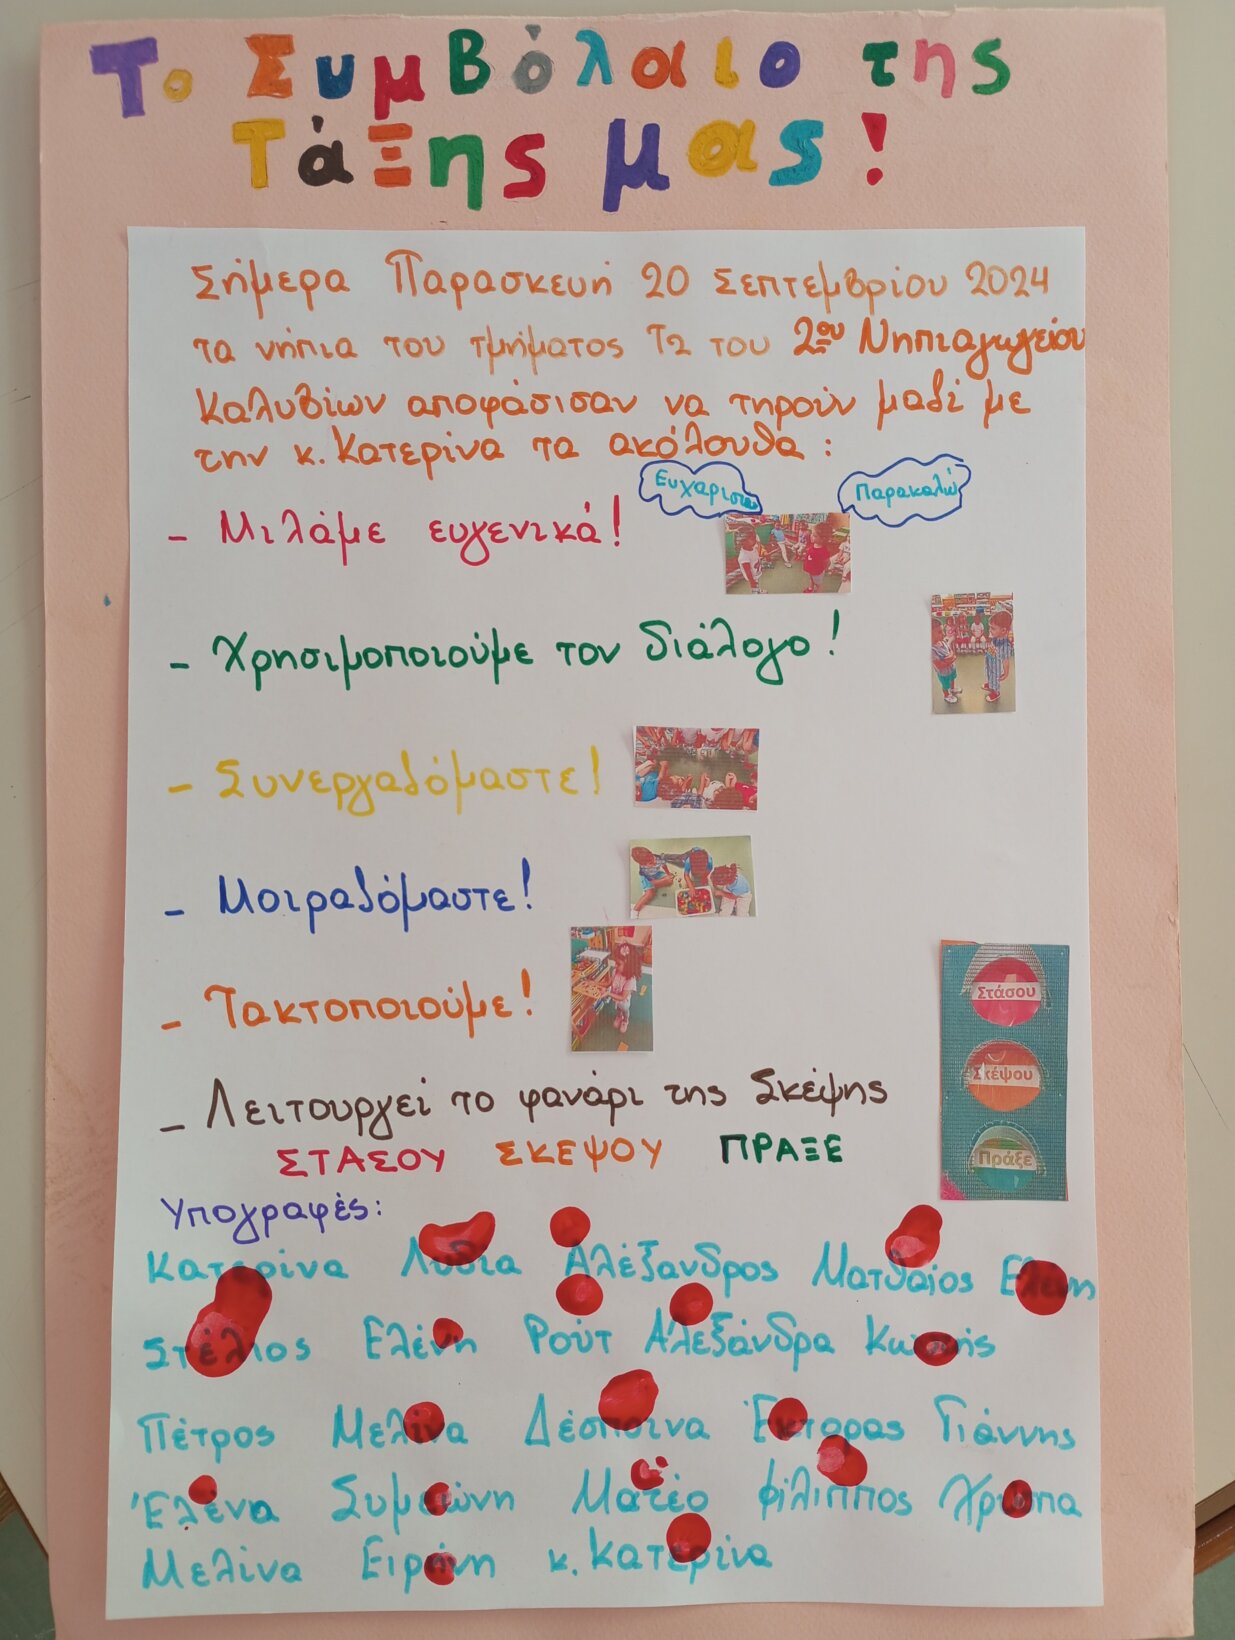 Το Συμβόλαιο της
Τάξης μας!
Σήμερα Παρασκευή 20 Σεπτεμβρίου 2024
τα νήπια του τμήματος Τ2 του 2ου Νηπιαγωγείου
Καλυβίων αποφάσισαν να τηρούν μαζί με
την κ. Κατερίνα τα ακόλουθα:
Ευχαριστώ
Παρακαλώ
- Μιλάμε ευγενικά!
- Χρησιμοποιούμε τον διάλογο!
- Συνεργαζόμαστε!
- Μοιραζόμαστε!
- Τακτοποιούμε!
Στάσου
Σκέψου
Πράξε
- Λειτουργεί το φανάρι της Σκέψης
ΣΤΑΣΟΥ ΣΚΕΨΟΥ ΠΡΑΞΕ
Υπογραφές:
Κατερίνα Λυδία Αλέξανδρος Ματθαίος Ελένη
Στέλιος Ελένη Ρούτ Αλεξάνδρα Κωστής
Πέτρος Μελίνα Δέσποινα Έκτορας Γιάννης
Έλενα Συμεώνη Ματέο Φίλιππος Χρύσπα
Μελίνα Ειρήνη κ. Κατερίνα